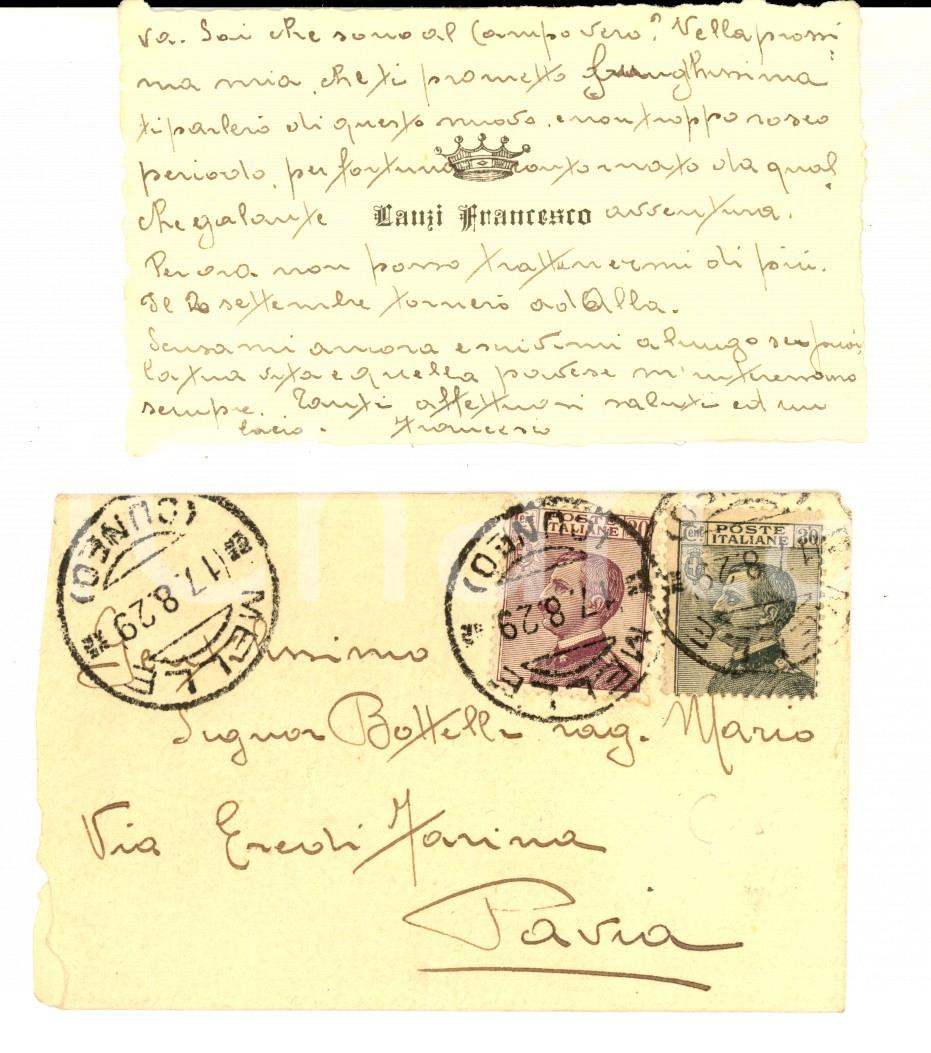 va. Sai che sono al Campo vero? Nella prossi
ma mia, che ti prometto lunghissima
ti parlerò di questo nuovo, e non troppo roseo
periodo, per fortuna contornato da qual
che galante avventura.
Lanzi Francesco
Per ora non posso trattenermi di più.
Il 20 settembre tornerò ad Alla.
Scusami ancora e scrivimi a lungo se puoi,
la tua vita e quella pavese m'interessano
sempre. Tanti affettuosi saluti ed un
bacio. Francesco
(CUNEO)
17.8.29
MELLE
(CUNEO)
17.8.29
MELLE
POSTE ITALIANE
Cent 20
POSTE ITALIANE
Cent 30
8.29
Signor Bottelli rag. Mario
Via Eredi Farina
Pavia